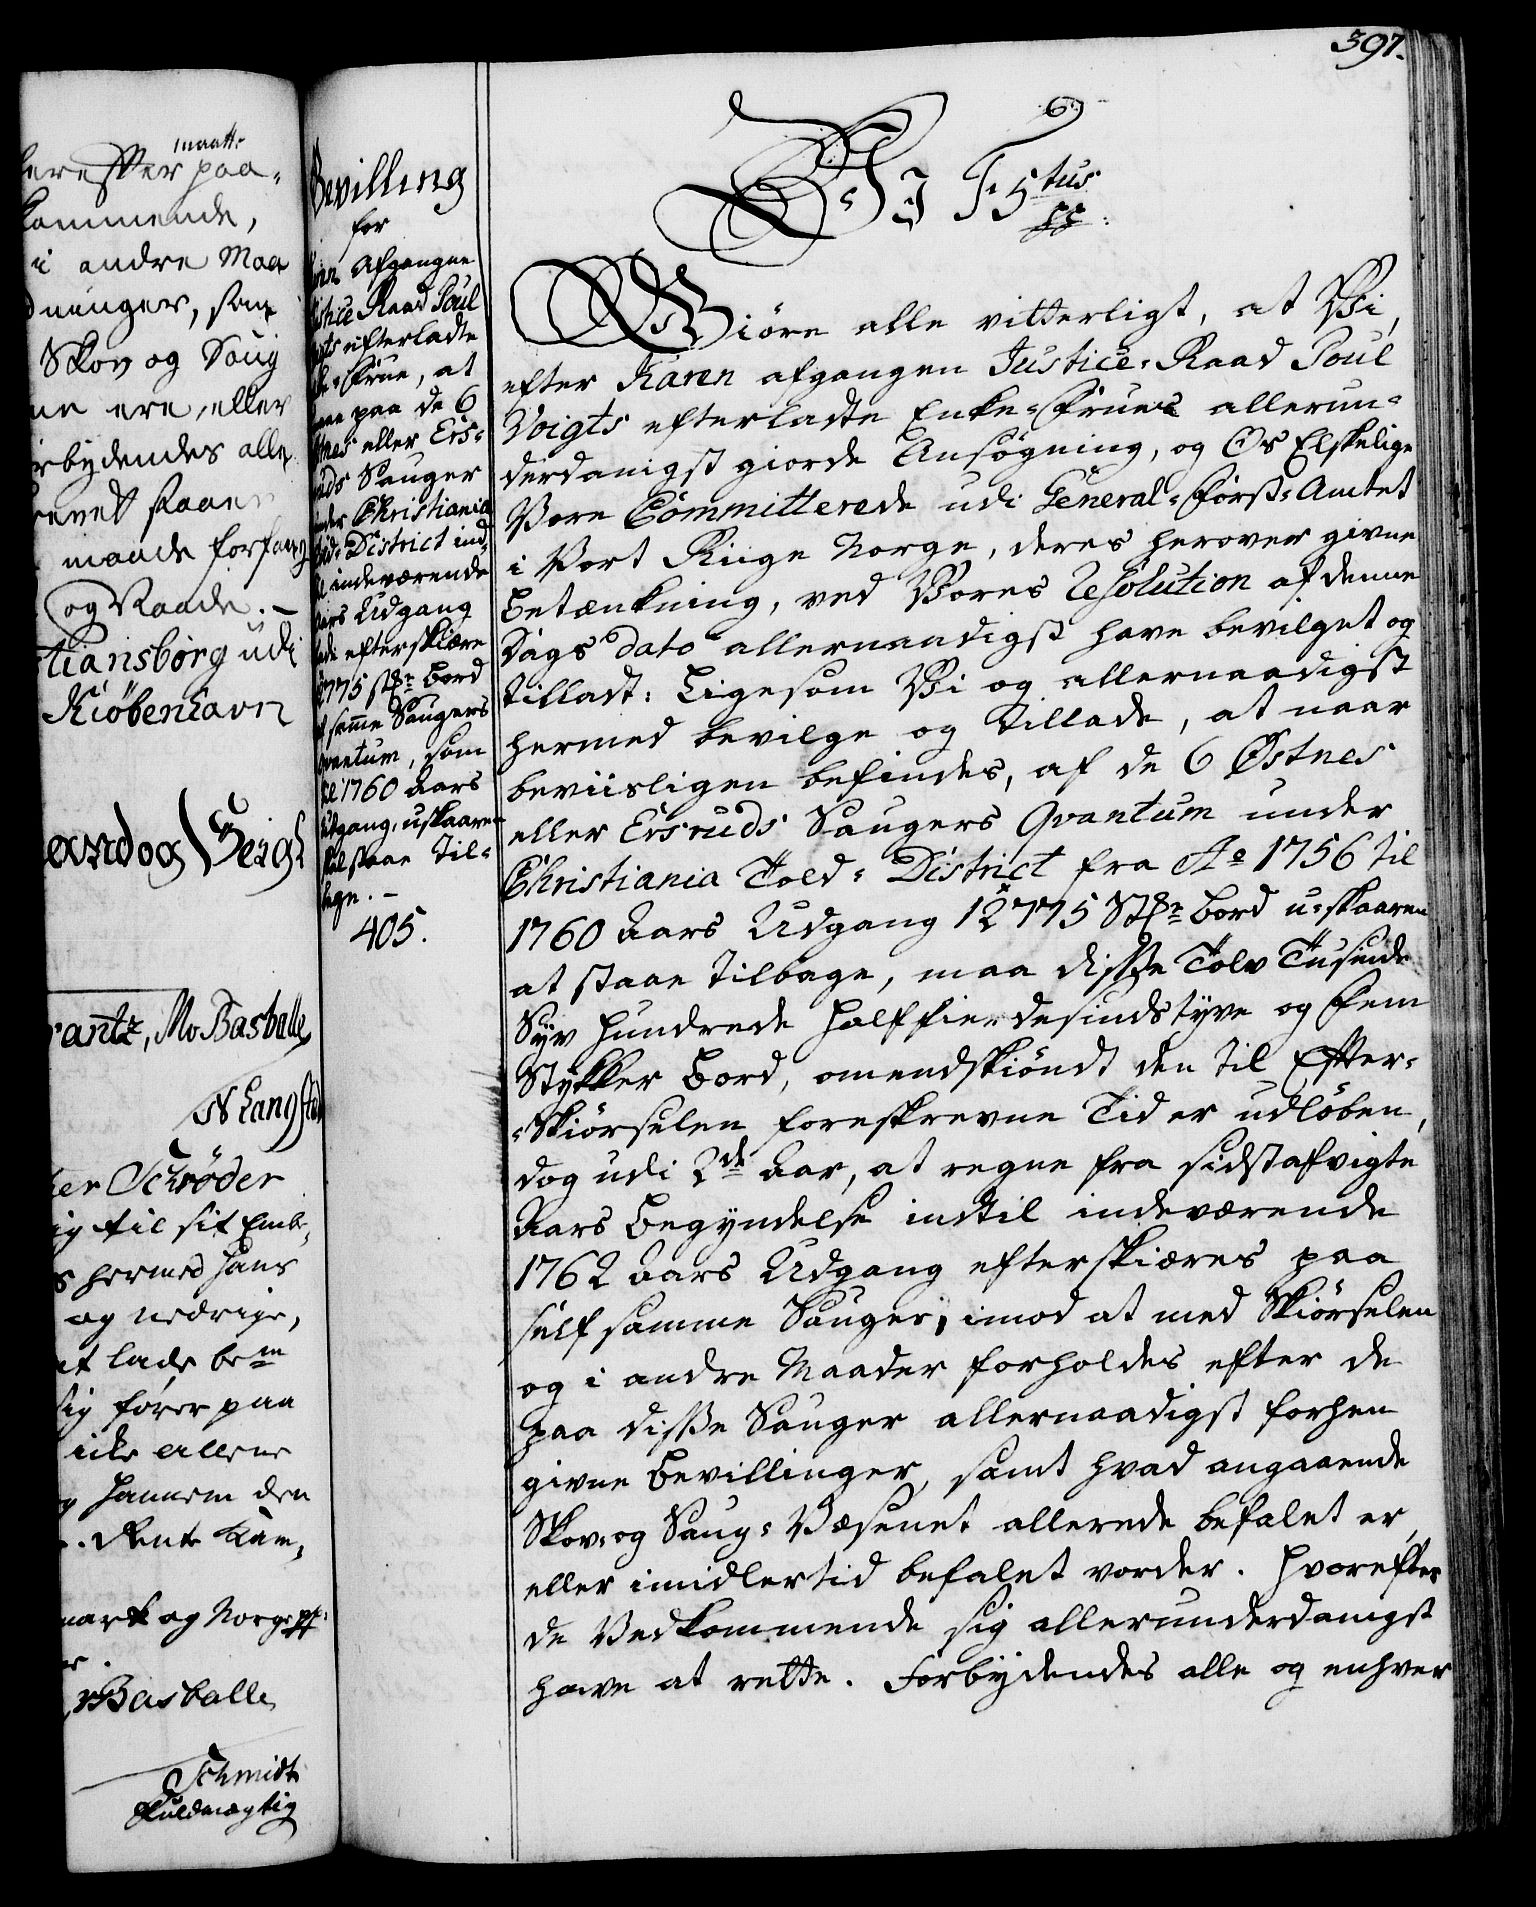 397.
maatte
herefter paa-
kommende,
i andre Maa
dninger, som
Skov og Saug
ne ere, eller
rbydendes alle
revet staaer
maade forfang
og Naade. –
stiansborg udi
Kiøbenhavn
rantz, M. Basballe,
N Langsted
ker Schrøder
ig til sit Embe-
s hermed hans
og nedrige,
at lade bem
sig fører paa
icke allene
g hannem den
. Rente Kam-
mark og Norge pp:
er.
, Basballe,
Schmidt
Fuldmægtig
Bevilling
for
Karen Afgangne
Justice Raad Poul
Voigts efterladte
Enke-Frue, at
maae paa de 6
Østnes eller Ers-
ruds Sauger
under Christiania
Told-District ind-
til indeværende
Aars Udgang
lade efterskiære
12775 stkr Bord
af samme Saugers
Qvantum, som
til 1760 Aars
Udgang, uskaaren
skal staae til-
bage. –
405.
Vi F 5tus
pp.
Giøre alle vitterligt, at Vi,
efter Karen afgangen Justice-Raad Poul
Voigts efterladte Enke-Frues allerun-
derdanigst giorde Ansøgning, og Os Elskelige
Vore Committerede udi General-Forst-Amtet
i Vort Riige Norge, deres herover givne
Betænkning, ved Vores Resolution af denne
Dags Dato allernaadigst have bevilget og
tilladt: Ligesom Vi og allernaadigst
hermed bevilge og tillade, at naar
beviisligen befindes, af de 6 Østnes
eller Ersruds Saugers Qvantum under
Christiania Told-District fra Ao 1756 til
1760 Aars Udgang 12775 Stkr Bord u-skaaren
at staae tilbage, maa disse Tolv Tusinde
Syv Hundrede Halffierdesindstyve og Fem
Stykker Bord, omendskiøndt den til Efter-
-Skiørselen foreskrevne Tid er udløben,
dog udi 2de Aar, at regne fra sidstafvigte
Aars Begyndelse indtil indeværende
1762 Aars Udgang efterskiæres paa
self samme Sauger; imod at med Skiørselen
og i andre Maader forholdes efter de
paa disse Sauger allernaadigst forhen
givne Bevillinger, samt hvad angaaende
Skov- og Saug-Væsenet allerede befalet er,
eller imidlertid befalet vorder. Hvorefter
de Vedkommende sig allerunderdanigst
have at rette. Forbydendes alle og enhver